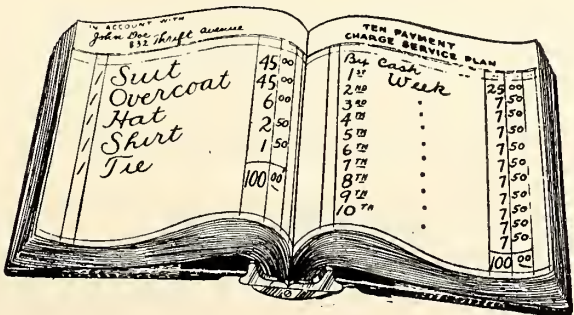 IN ACCOUNT WITH
John Doe
832 Thrift avenue
1 Suit 45 00
1 Overcoat 45 00
1 Hat 6 00
1 Shirt 2 50
1 Tie 1 50
100 00
TEN PAYMENT
CHARGE SERVICE PLAN
By Cash 25 00
1ST Week 7 50
2ND " 7 50
3RD " 7 50
4TH " 7 50
5TH " 7 50
6TH " 7 50
7TH " 7 50
8TH " 7 50
9TH " 7 50
10TH " 7 50
100 00